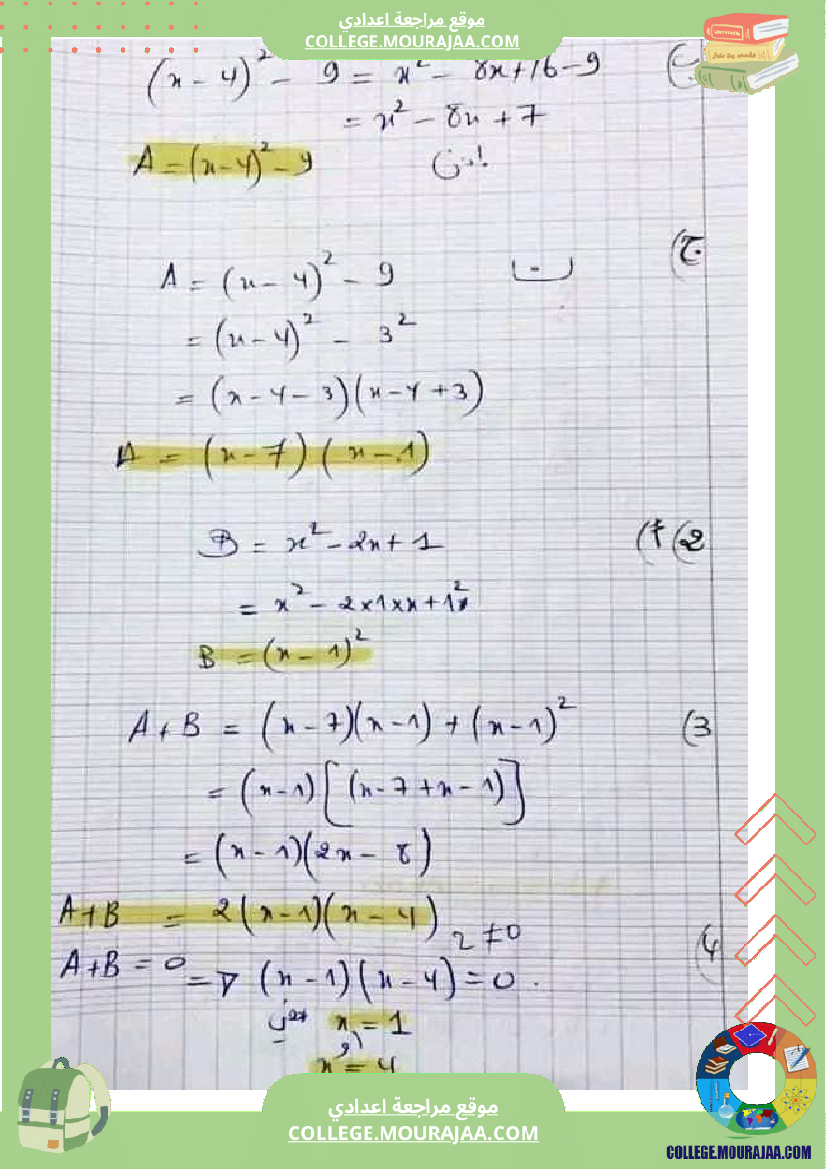 موقع مراجعة اعدادي
COLLEGE.MOURAJAA.COM
ب) (x - 4)² - 9 = x² - 8x + 16 - 9
= x² - 8x + 7
إذن
A = (x-4)² - 9
ج)
A = (x - 4)² - 9
= (x - 4)² - 3²
= (x - 4 - 3)(x - 4 + 3)
A = (x - 7)(x - 1)
2) أ) B = x² - 2x + 1
= x² - 2×1×x + 1²
B = (x - 1)²
3) A + B = (x - 7)(x - 1) + (x - 1)²
= (x - 1)[(x - 7 + x - 1)]
= (x - 1)(2x - 8)
A+B = 2(x - 1)(x - 4)
4) 2 ≠ 0
A+B = 0 => (x - 1)(x - 4) = 0.
x = 1
أو
x = 4
موقع مراجعة اعدادي
COLLEGE.MOURAJAA.COM
COLLEGE.MOURAJAA.COM